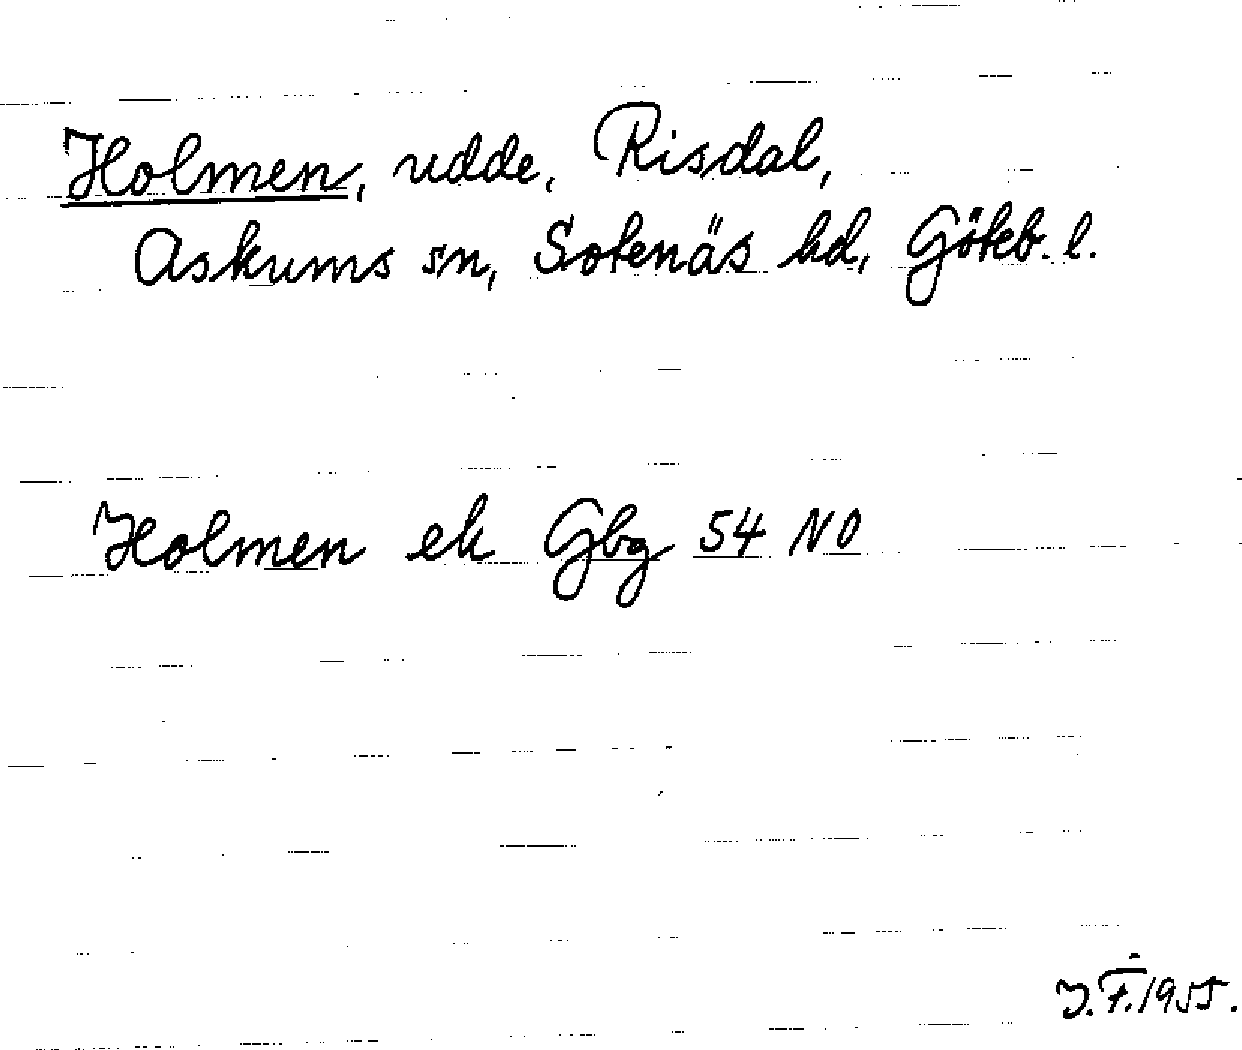 Holmen, udde, Risdal,
Askums sn, Sotenäs hd, Göteb. l.
Holmen ek Gbg 54 NO
J.F. 1955.